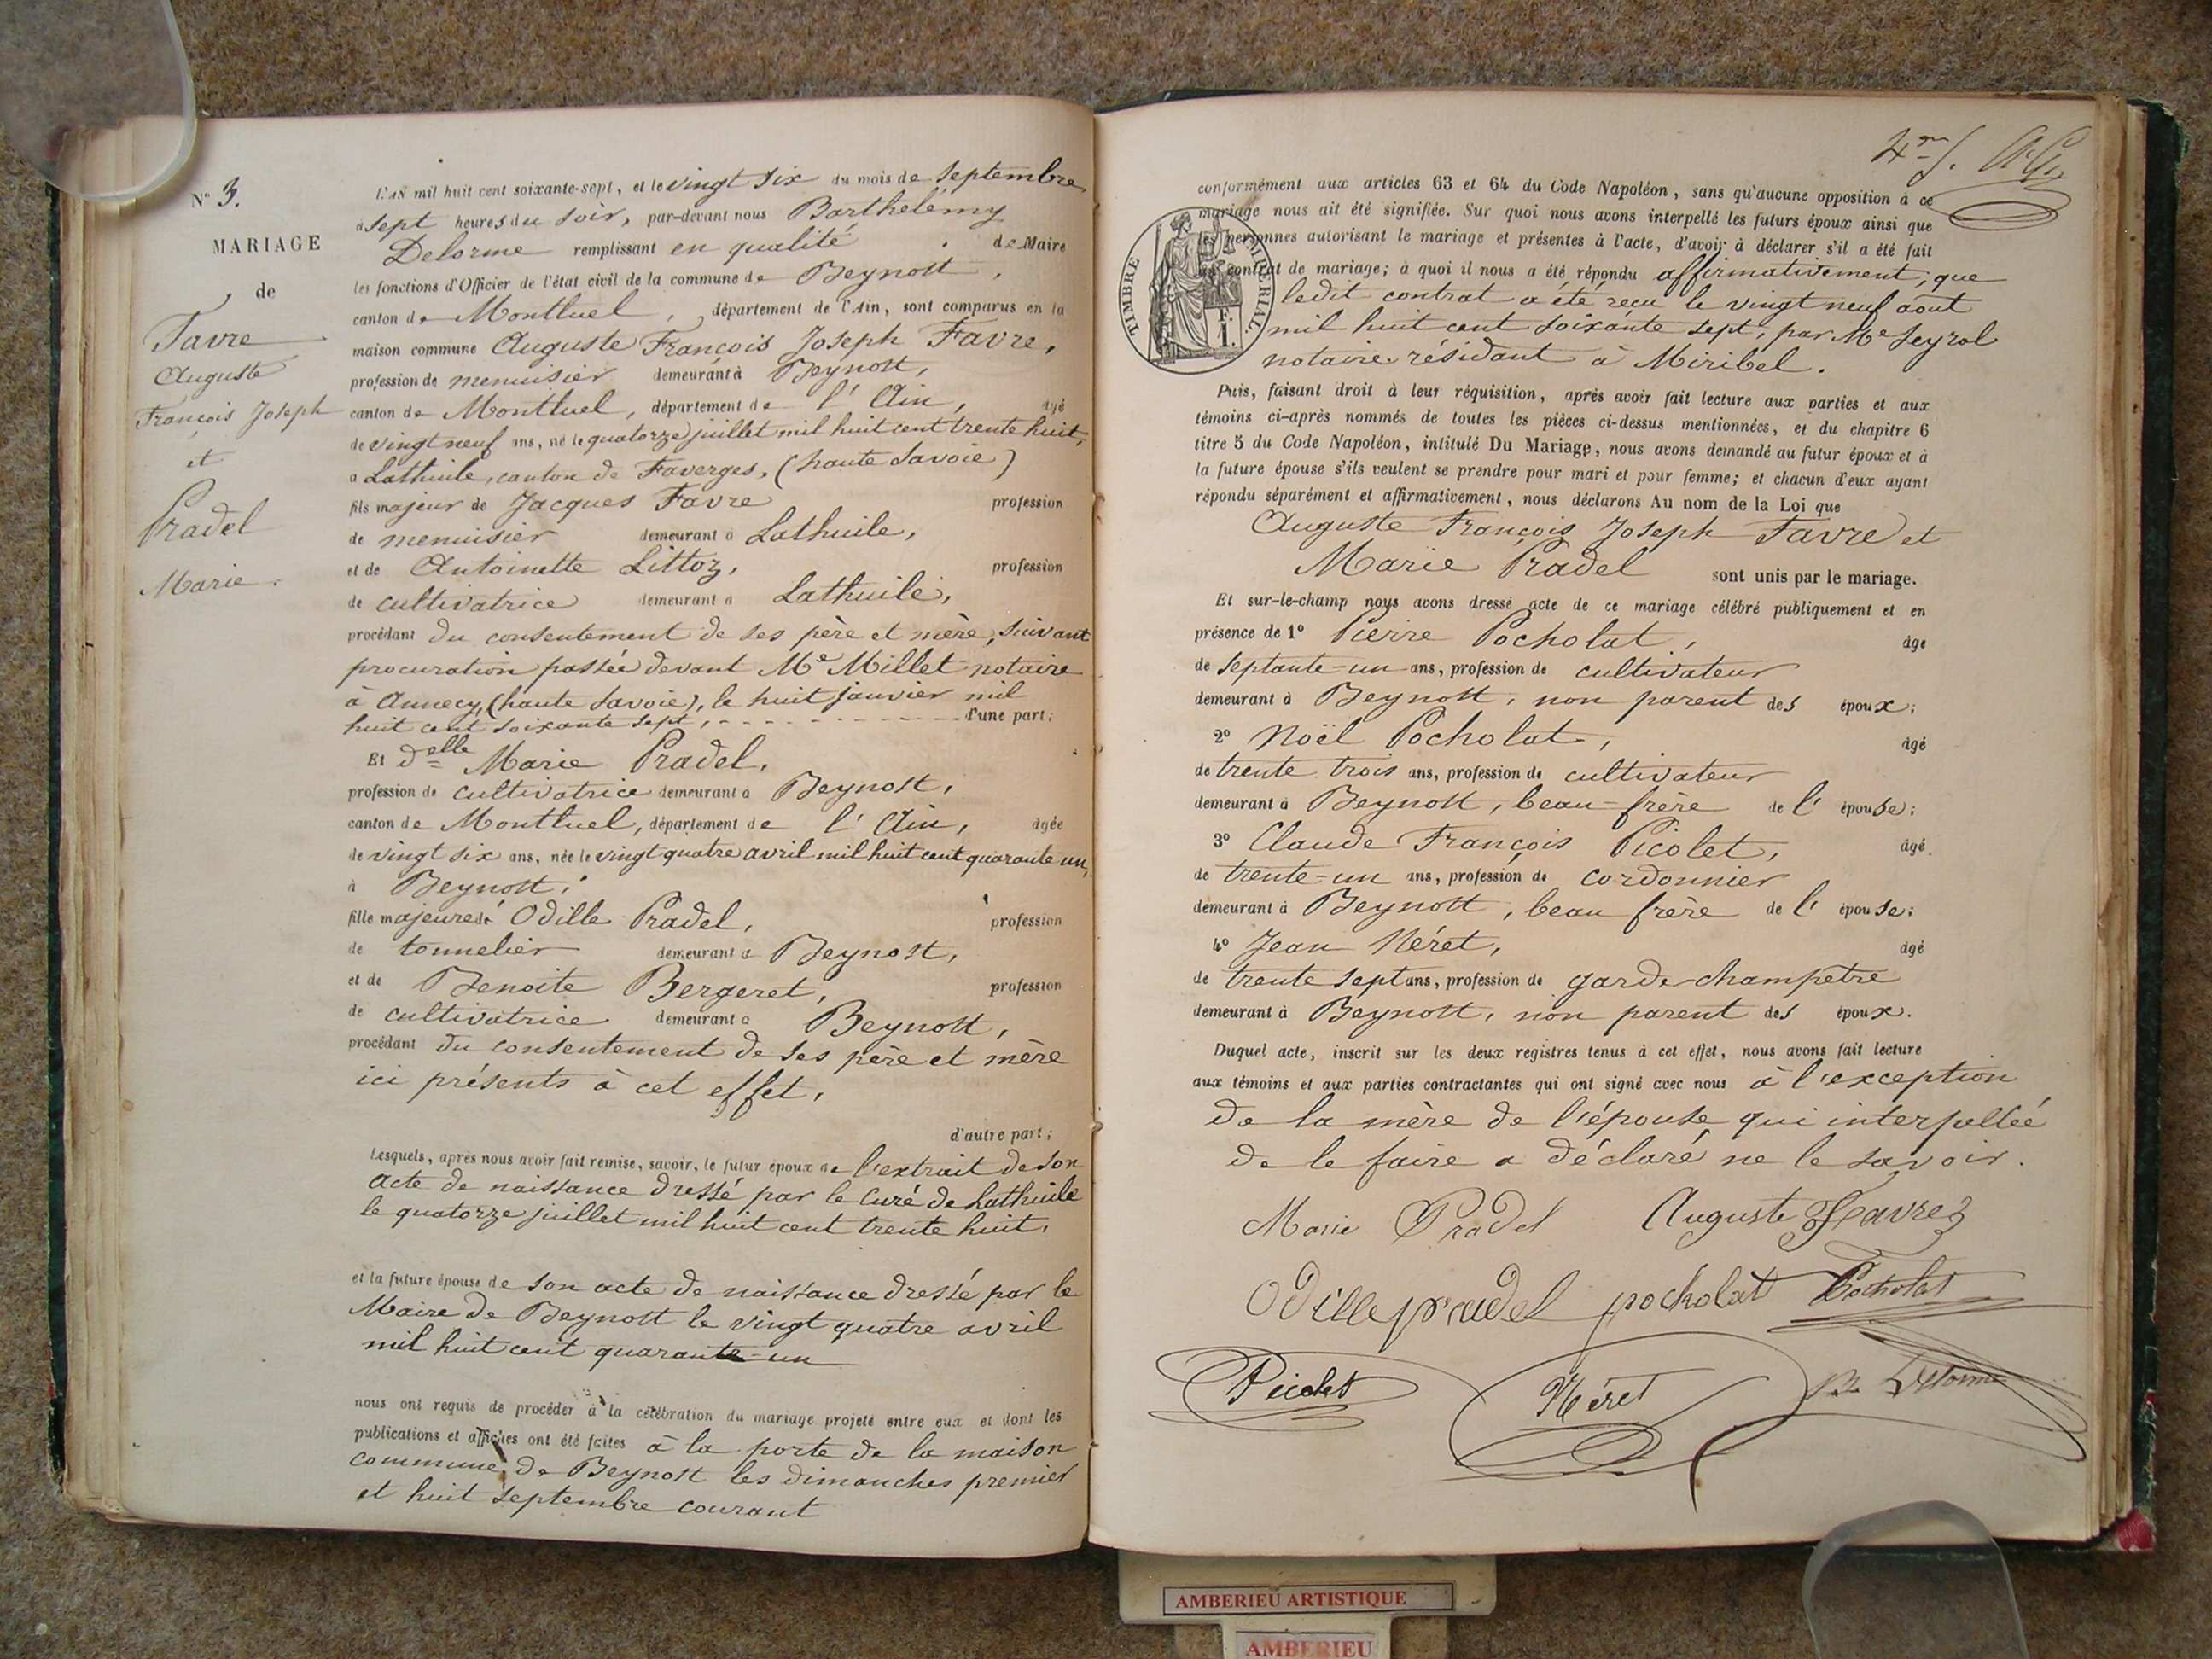 N° 3.
MARIAGE
de
Favre
Auguste
François Joseph
et
Pradel
Marie.
L'an mil huit cent soixante-sept, et le vingt six du mois de Septembre
à sept heures du soir, par-devant nous Barthelémy
Delorme remplissant en qualité de Maire
les fonctions d'Officier de l'état civil de la commune de Beynost,
canton de Montluel, département de l'Ain, sont comparus en la
maison commune Auguste François Joseph Favre,
profession de menuisier demeurant à Beynost,
canton de Montluel, département de l'Ain, âgé
de vingt neuf ans, né le quatorze juillet mil huit cent trente huit,
a Lathuile, canton de Faverges, (haute Savoie)
fils majeur de Jacques Favre profession
de menuisier demeurant à Lathuile,
et de Antoinette Littoz, profession
de cultivatrice demeurant à Lathuile,
procédant du consentement de ses père et mère, suivant
procuration passée devant Me Millet notaire
à Annecy, (haute Savoie), le huit janvier mil
huit cent soixante sept, d'une part;
Et delle Marie Pradel,
profession de cultivatrice demeurant à Beynost,
canton de Montluel, département de l'Ain, âgée
de vingt six ans, née le vingt quatre avril mil huit cent quarante un,
à Beynost,
fille majeure de Odille Pradel, profession
de tonnelier demeurant à Beynost,
et de Benoite Bergeret, profession
de cultivatrice demeurant à Beynost,
procédant du consentement de ses père et mère
ici présents à cet effet,
d'autre part;
Lesquels, après nous avoir fait remise, savoir, le futur époux de l'extrait de son
acte de naissance dressé par le Curé de Lathuile
le quatorze juillet mil huit cent trente huit,
et la future épouse de son acte de naissance dressé par le
Maire de Beynost le vingt quatre avril
mil huit cent quarante-un
nous ont requis de procéder à la célébration du mariage projeté entre eux et dont les
publications et affiches ont été faites à la porte de la maison
commune de Beynost les dimanches premier
et huit Septembre courant
conformément aux articles 63 et 64 du Code Napoléon, sans qu'aucune opposition à ce
mariage nous ait été signifiée. Sur quoi nous avons interpellé les futurs époux ainsi que
les personnes autorisant le mariage et présentes à l'acte, d'avoir à déclarer s'il a été fait
un contrat de mariage; à quoi il nous a été répondu affirmativement, que
ledit contrat a été reçu le vingt neuf août
mil huit cent soixante sept, par Me Seyrol
notaire résidant à Miribel.
TIMBRE IMPÉRIAL
F.
1.
Puis, faisant droit à leur réquisition, après avoir fait lecture aux parties et aux
témoins ci-après nommés de toutes les pièces ci-dessus mentionnées, et du chapitre 6
titre 5 du Code Napoléon, intitulé Du Mariage, nous avons demandé au futur époux et à
la future épouse s'ils veulent se prendre pour mari et pour femme; et chacun d'eux ayant
répondu séparément et affirmativement, nous déclarons Au nom de la Loi que
Auguste François Joseph Favre et
Marie Pradel sont unis par le mariage.
Et sur-le-champ nous avons dressé acte de ce mariage célébré publiquement et en
présence de 1° Pierre Pocholat, âgé
de septante-un ans, profession de cultivateur
demeurant à Beynost, non parent des époux;
2° Noël Pocholat, âgé
de trente trois ans, profession de cultivateur
demeurant à Beynost, beau-frère de l'épouse;
3° Claude François Picolet, âgé
de trente-un ans, profession de cordonnier
demeurant à Beynost, beau frère de l'épouse;
4° Jean Néret, âgé
de trente sept ans, profession de garde-champetre
demeurant à Beynost, non parent des époux.
Duquel acte, inscrit sur les deux registres tenus à cet effet, nous avons fait lecture
aux témoins et aux parties contractantes qui ont signé avec nous à l'exception
de la mère de l'épouse qui interpellée
de le faire a déclaré ne le savoir.
Marie Pradel Auguste Favre
Odille pradel pocholat Pocholat
Picolet Néret Delorme
AMBERIEU ARTISTIQUE
AMBERIEU